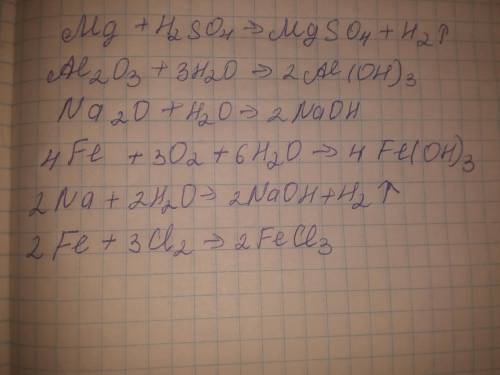 Mg + H₂SO₄ → MgSO₄ + H₂↑
Al₂O₃ + 3H₂O → 2Al(OH)₃
Na₂O + H₂O → 2NaOH
4Fe + 3O₂ + 6H₂O → 4Fe(OH)₃
2Na + 2H₂O → 2NaOH + H₂↑
2Fe + 3Cl₂ → 2FeCl₃